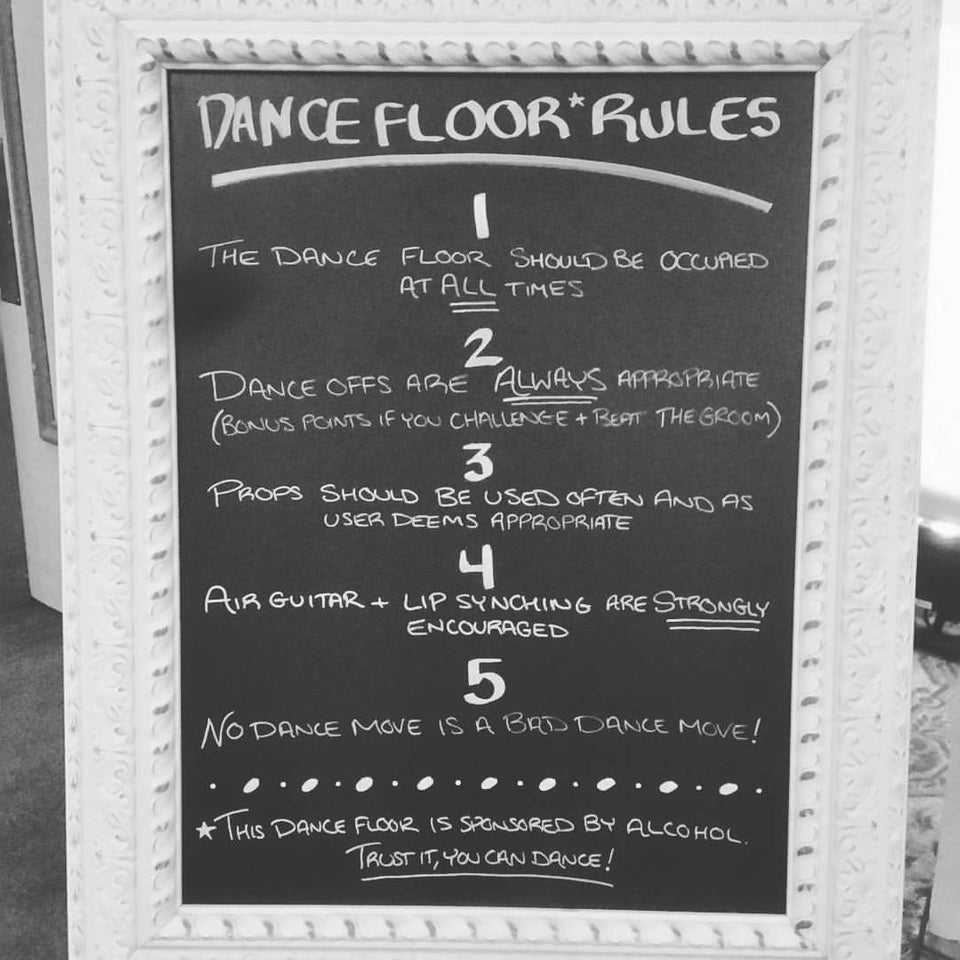 DANCE FLOOR* RULES
1
THE DANCE FLOOR SHOULD BE OCCUPIED
AT ALL TIMES
2
DANCE OFFS ARE ALWAYS APPROPRIATE
(BONUS POINTS IF YOU CHALLENGE + BEAT THE GROOM)
3
PROPS SHOULD BE USED OFTEN AND AS
USER DEEMS APPROPRIATE
4
AIR GUITAR + LIP SYNCHING ARE STRONGLY
ENCOURAGED
5
NO DANCE MOVE IS A BAD DANCE MOVE!
★ THIS DANCE FLOOR IS SPONSORED BY ALCOHOL.
TRUST IT, YOU CAN DANCE!